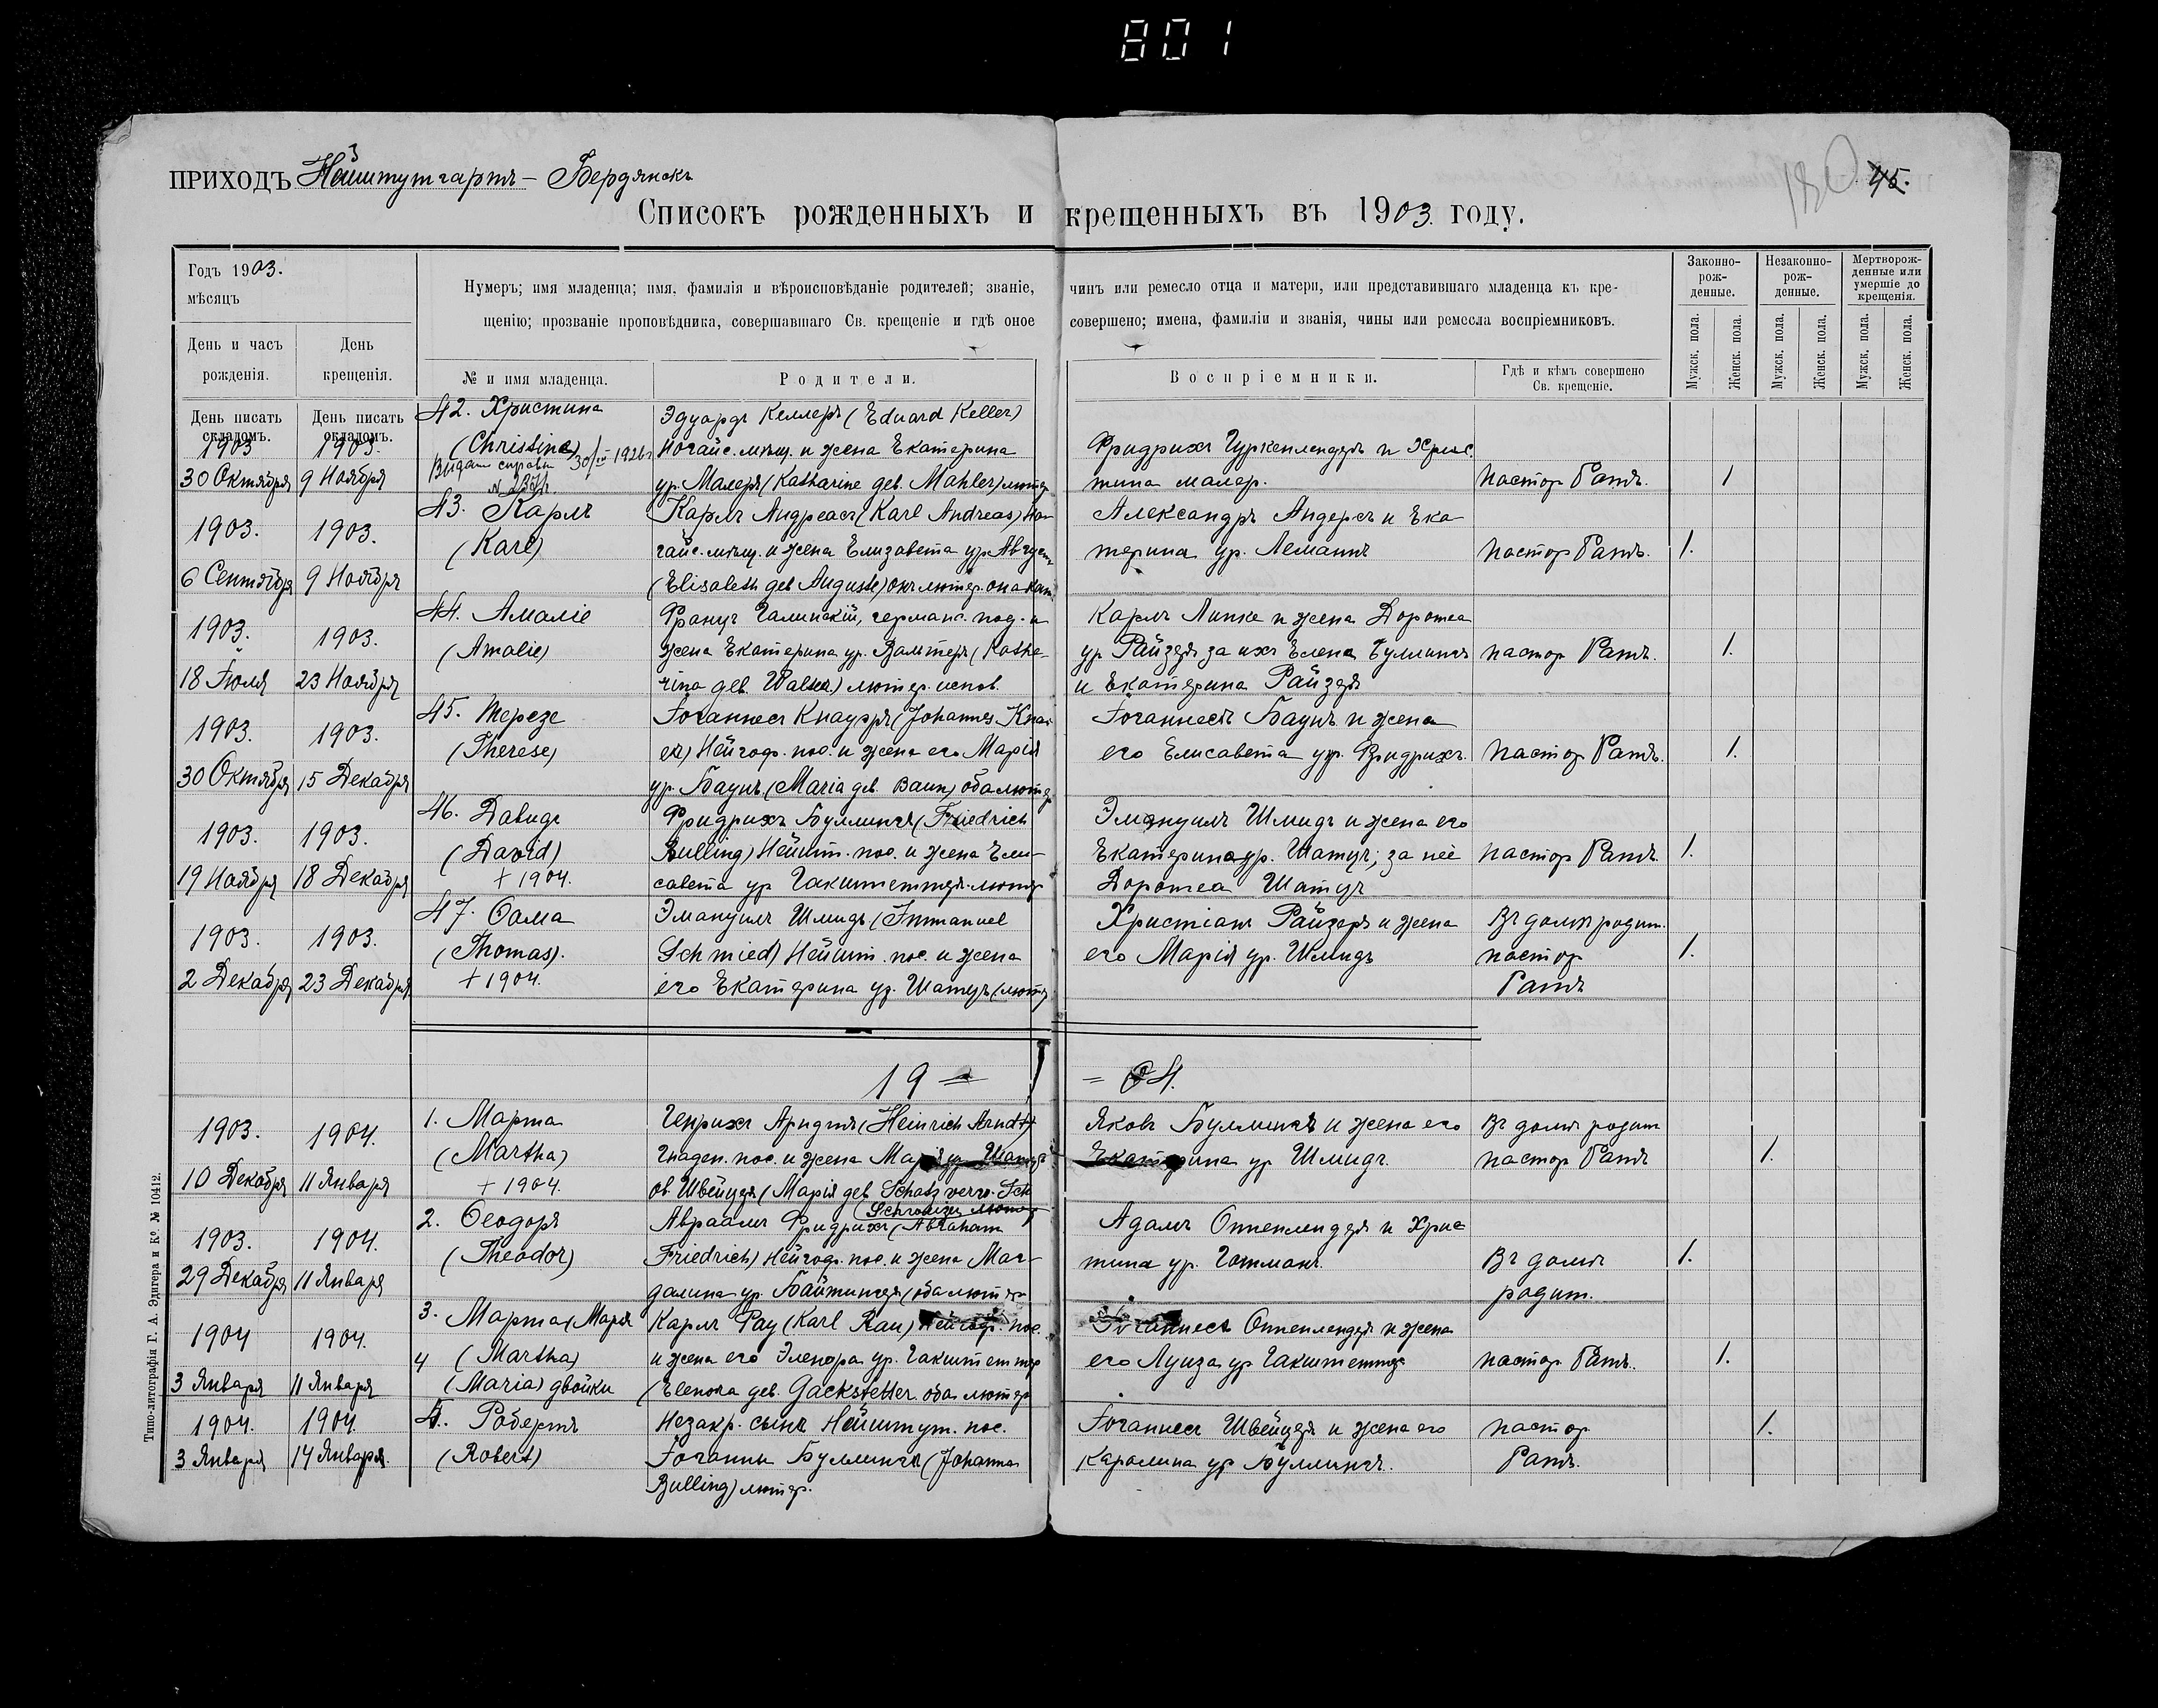 801
ПРИХОДЪ Нейштутгартъ - Бердянскъ
180 45.
Списокъ рожденныхъ и крещенныхъ въ 1903 году.
Годъ 1903.
мѣсяцъ
День и часъ рожденія.
День крещенія.
Нумеръ; имя младенца; имя, фамилія и вѣроисповѣданіе родителей; званіе, чинъ или ремесло отца и матери, или представившаго младенца къ кре-
щенію; прозваніе проповѣдника, совершавшаго Св. крещеніе и гдѣ оное совершено; имена, фамиліи и званія, чины или ремесла воспріемниковъ.
№ и имя младенца.
Родители.
Воспріемники.
Гдѣ и кѣмъ совершено Св. крещеніе.
Законно-рож-денные.
Незаконно-рож-денные.
Мертворож-денные или умершіе до крещенія.
Мужск. пола. Женск. пола. Мужск. пола. Женск. пола. Мужск. пола. Женск. пола.
День писать складомъ.
День писать складомъ.
1903 30 Октября
1903. 9 Ноября
42. Христина
(Christine)
30/III 1926
Эдуардъ Келлеръ (Eduard Keller)
Ногайс. мѣщ. и жена Екатерина
ур. Малеръ (Katharine geb. Mahler) лютер
Фридрихъ Цуркенлендеръ и Хрис
тина малер.
пастор Ратъ.
1
1903. 6 Сентября
1903. 9 Ноября
43. Карлъ
(Karl)
Карлъ Андреасъ (Karl Andreas) но-
гайс. мѣщ. и жена Елизавета ур Август
(Elisabeth geb Auguste) онъ лютер. она кат.
Александръ Андерсъ и Ека
терина ур. Леманъ
пастор Ратъ.
1.
1903. 18 Іюля
1903. 23 Ноября
44. Амаліе
(Amalie)
Францъ Галинскій, германс. под. и
жена Екатерина ур. Валтеръ (Kathe-
rina geb. Walter) лютер. испов.
Карлъ Липке и жена Доротеа
ур Райзеръ за ихъ Елена Буллингъ
и Екатерина Райзеръ
пастор Ратъ.
1.
1903. 30 Октября
1903. 15 Декабря
45. Терезе
(Therese)
Іоганнесъ Кнауеръ (Johannes Knau
er) Нейгоф. пос. и жена его Марія
ур. Баунъ (Maria geb. Baun) оба лютер
Іоганнесъ Баунъ и жена
его Елисавета ур. Фридрихъ.
пастор Ратъ.
1.
1903. 19 Ноября
1903. 18 Декабря
46. Давидъ
(David)
+ 1904.
Фридрихъ Буллингъ (Friedrich
Bulling) Нейшт. пос. и жена Ели-
савета ур Гакштеттеръ лютер
Эмануилъ Шмидъ и жена его
Екатерина ур. Шатцъ; за неё
Доротеа Шатцъ
пастор Ратъ
1.
1903. 2 Декабря
1903. 23 Декабря
47. Ѳома
(Thomas).
+ 1904.
Эмануилъ Шмидъ (Immanuel
Schmied) Нейшт. пос. и жена
его Екатерина ур. Шатцъ (лютер
Христіанъ Райзеръ и жена
его Марія ур. Шмидъ
Въ домѣ родит.
пастор
Ратъ
1.
19 = = 04.
1903. 10 Декабря
1904. 11 Января
1. Марта
(Martha)
+ 1904.
Генрихъ Арндтъ (Heinrich Arndt)
Гнаден. пос. и жена Марія ур Шатцъ
ов. Швейцеръ (Марія geb Schatz verw. Sch
Schweizer лютер
Яковъ Буллингъ и жена его
Екатерина ур Шмидъ.
Въ домѣ родит
пастор Ратъ
1.
1903. 29 Декабря
1904. 11 Января
2. Ѳеодоръ
(Theodor)
Авраамъ Фридрихъ (Abraham
Friedrich) Нейгоф. пос. и жена Маг-
далина ур. Байтингеръ (оба лютер
Адамъ Оппенлендеръ и Хрис
тина ур. Готманъ.
Въ домѣ
родит.
1.
1904 3 Января
1904. 11 Января
3. Марта (Марія
4 (Martha)
(Maria) двойни
Карлъ Рау (Karl Rau) Нейгоф. пос.
и жена его Эленора ур. Гакштеттер
(Elenora geb. Gackstetter оба лютер
Іоганнесъ Оппенлендеръ и жена
его Луиза ур Гакштеттер
пастор Ратъ.
1.
1904. 3 Января
1904. 14 Января.
Робертъ
(Robert)
Незакр. сынъ Нейштут. пос.
Іоганны Буллингъ (Johanna
Bulling) лютер.
Іоганнесъ Швейцеръ и жена его
Каролина ур Буллингъ.
пастор
Ратъ.
1.
Типо-литографія Г. А. Эдигера и Ко. № 10412.